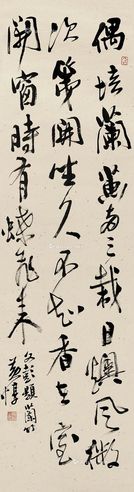 偶培蘭蕙兩三栽日燠風微
次第開坐久不知香在室
開窗時有蝶飛來
文彭題蘭
黃惇